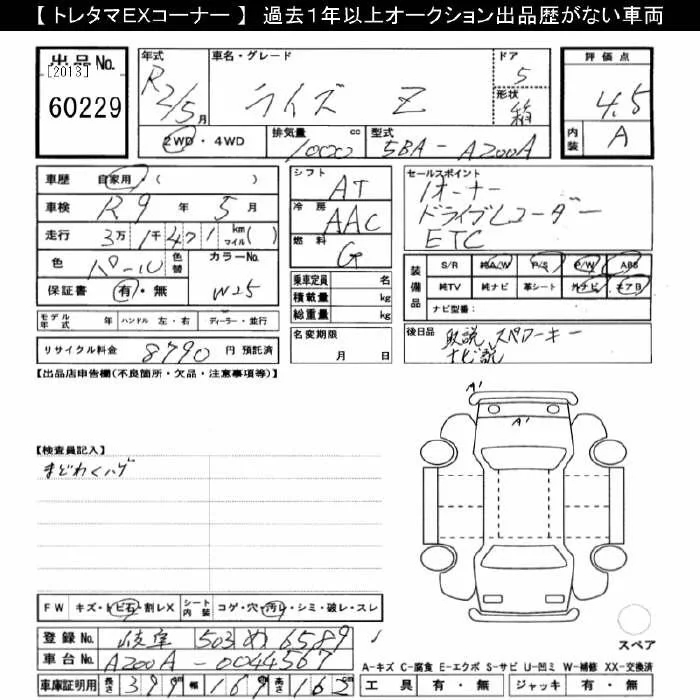 【 トレタマEXコーナー 】 過去1年以上オークション出品歴がない車両
出品No.
[2013]
60229
年式 R2/5月
車名・グレード ライズ Z
ドア 5
形状 箱
2WD・4WD
排気量 1000 cc
型式 5BA-A200A
評価点 4.5
内装 A
車歴 自家用・( )
車検 R9年 5月
走行 3万1千471 km マイル( )
色 パール 色替
カラーNo. W25
保証書 有・無
モデル年式 年 ハンドル 左・右 ディーラー・並行
リサイクル料金 8790 円 預託済
シフト AT
冷房 AAC
燃料 G
乗車定員 名
積載量 kg
総重量 kg
名変期限 月 日
セールスポイント
1オーナー
ドライブレコーダー
ETC
装備品
S/R 純A/W P/S P/W ABS
純TV 純ナビ 革シート 外ナビ エアB
ナビ型番:
後日品 取説 スペアーキー
ナビ説
【出品店申告欄(不良箇所・欠品・注意事項等)】
【検査員記入】
まどわくハゲ
A'
A'
FW キズ・トビ石・割レX
シート内装 コゲ・穴・汚レ・シミ・破レ・スレ
登録No. 岐阜 503 め 6589
車台No. A200A-0044567
車庫証明用 長さ 399 幅 169 高さ 162
スペア
A-キズ C-腐食 E-エクボ S-サビ U-凹ミ W-補修 XX-交換済
工具 有・無 ジャッキ 有・無